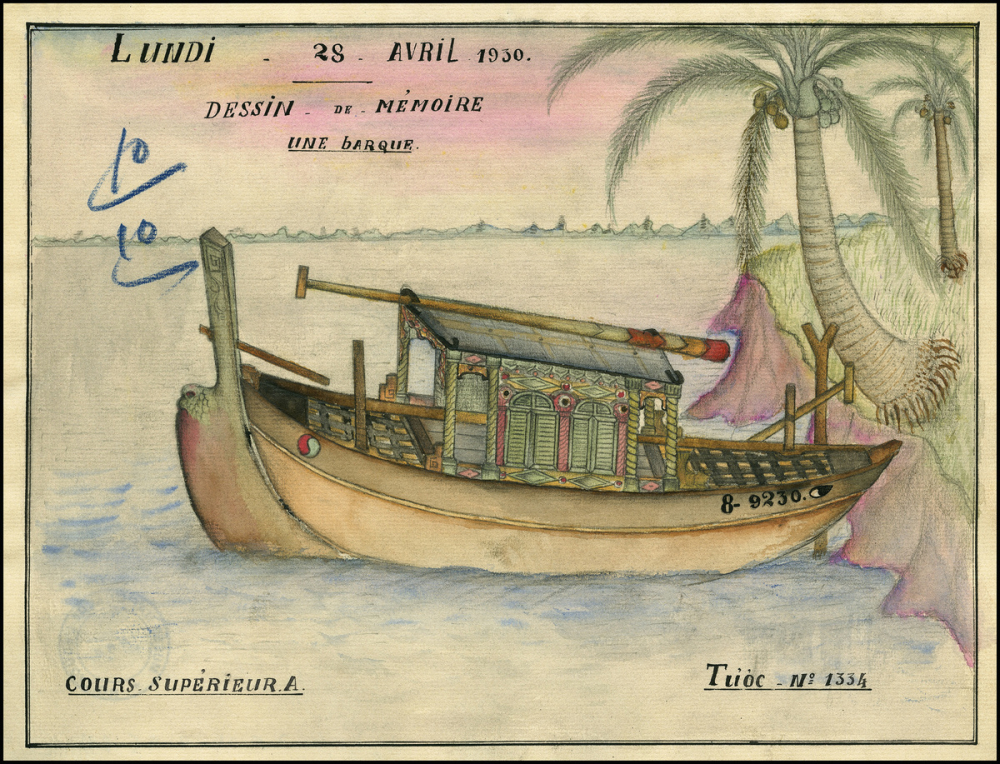 LUNDI - 28 - AVRIL 1930.
DESSIN - DE - MÉMOIRE
UNE BARQUE.
10
10
8- 9230.
COURS. SUPÉRIEUR. A.
Tước - Nº 1334